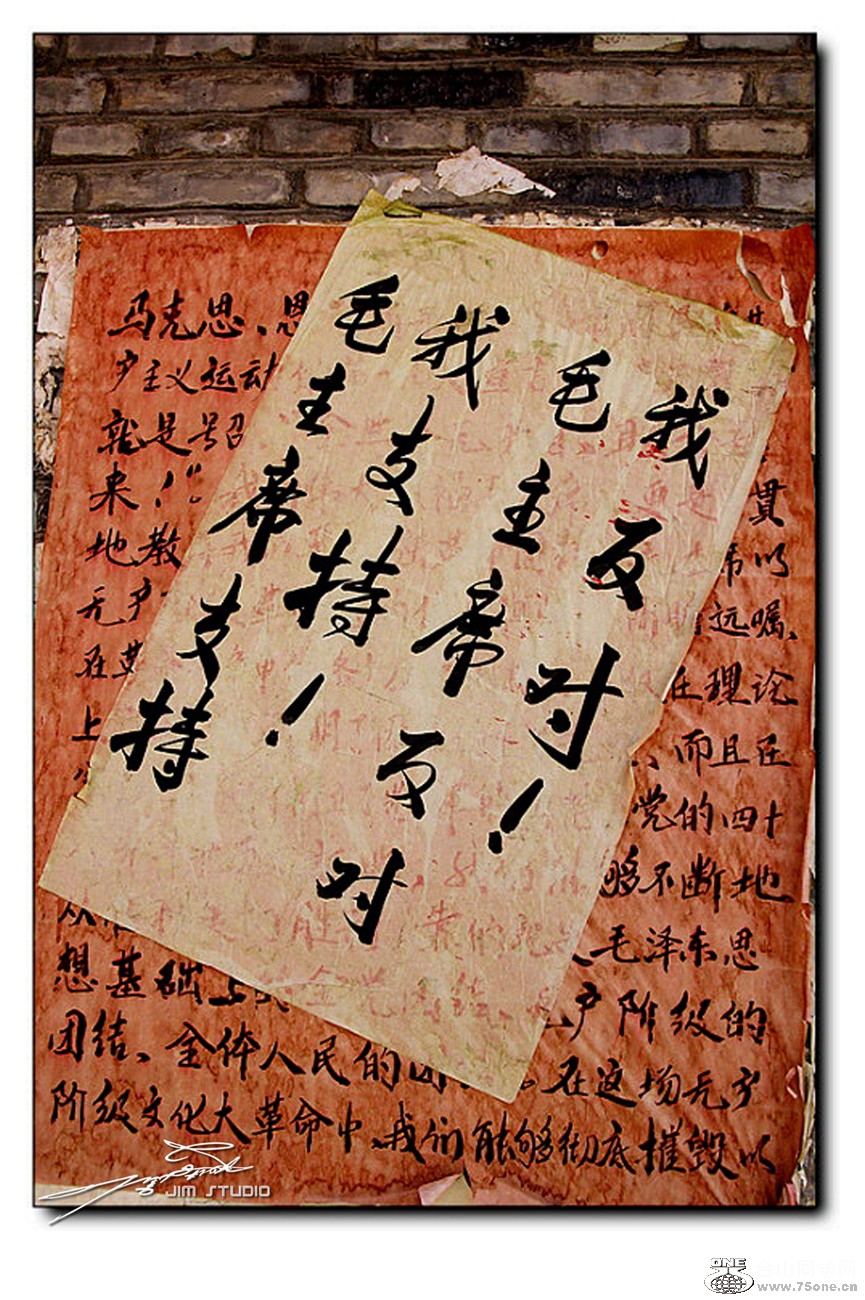 毛主席支持
我支持!
毛主席反对
我反对!
马克思、
产主义运动
就是号召
来
贯
地 教
以
无产
远嘱、
在
在理论
上
而且在
党的四十
够不断地
毛泽东思
想基础上
产阶级的
团结、全体人民的团
在这场无产
阶级文化大革命中、我们能够彻底摧毁以
JIM STUDIO
ONE
www.75one.cn